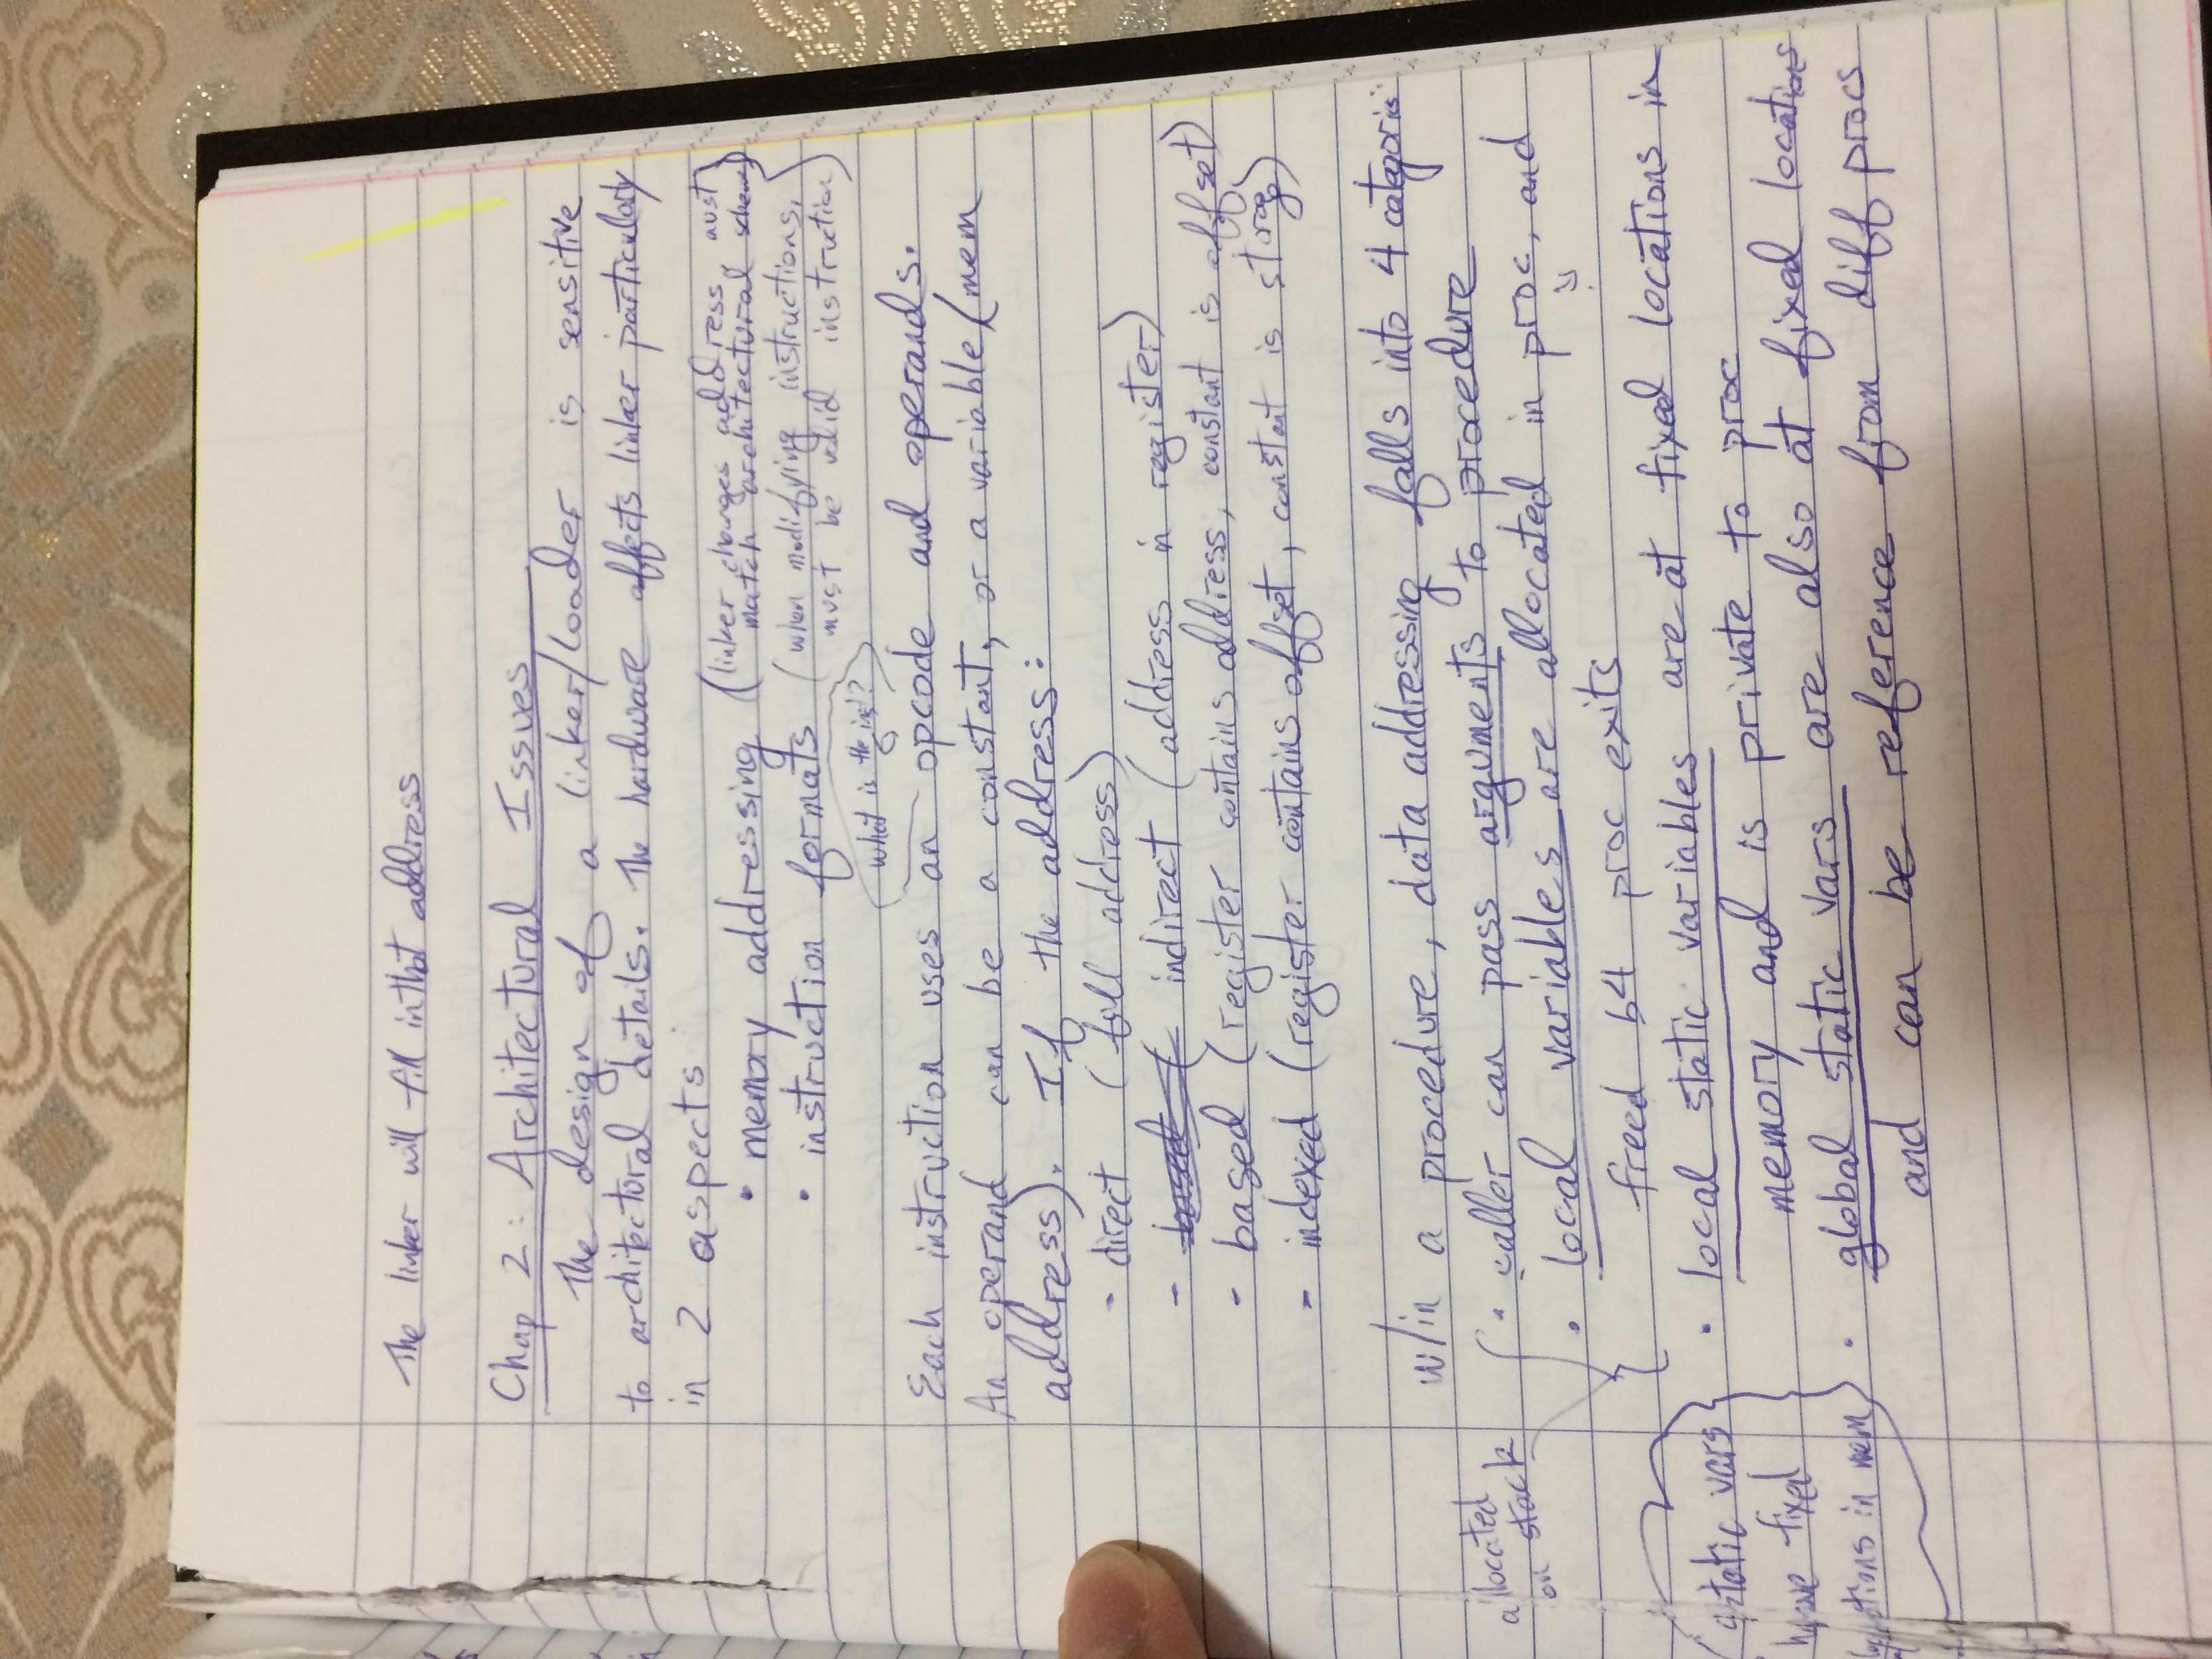 The linker will fill in that address
Chap 2: Architectural Issues
The design of a linker/loader is sensitive
to architectural details. The hardware affects linker particularly
in 2 aspects
• memory addressing (linker changes address, must
match architectural scheme)
• instruction formats (when modifying instructions,
must be valid instruction)
what is the inst?
Each instruction uses an opcode and operands.
An operand can be a constant, or a variable (mem
address). If the address:
- direct (full address)
- based ( indirect (address in register)
- based (register contains address, constant is offset)
- indexed (register contains offset, constant is storage)
w/in a procedure, data addressing falls into 4 categories:
• caller can pass arguments to procedure
allocated
on stack
• local variables are allocated in proc, and
freed b4 proc exits
• local static variables are at fixed locations in
memory and is private to proc
static vars
have fixed
locations in mem
• global static vars are also at fixed locations
and can be reference from diff procs